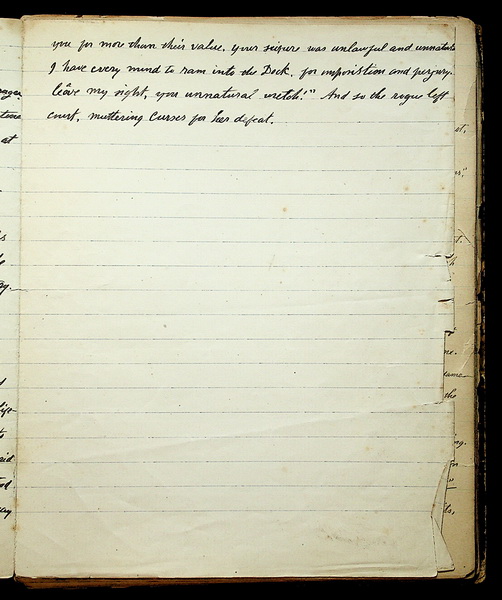 you for more than their value. your seizure was unlawful and unnatural
I have every mind to ram into the Dock, for imposition and perjury.
leave my sight, you unnatural wretch!" And so the rogue left
court, muttering Curses for her defeat.